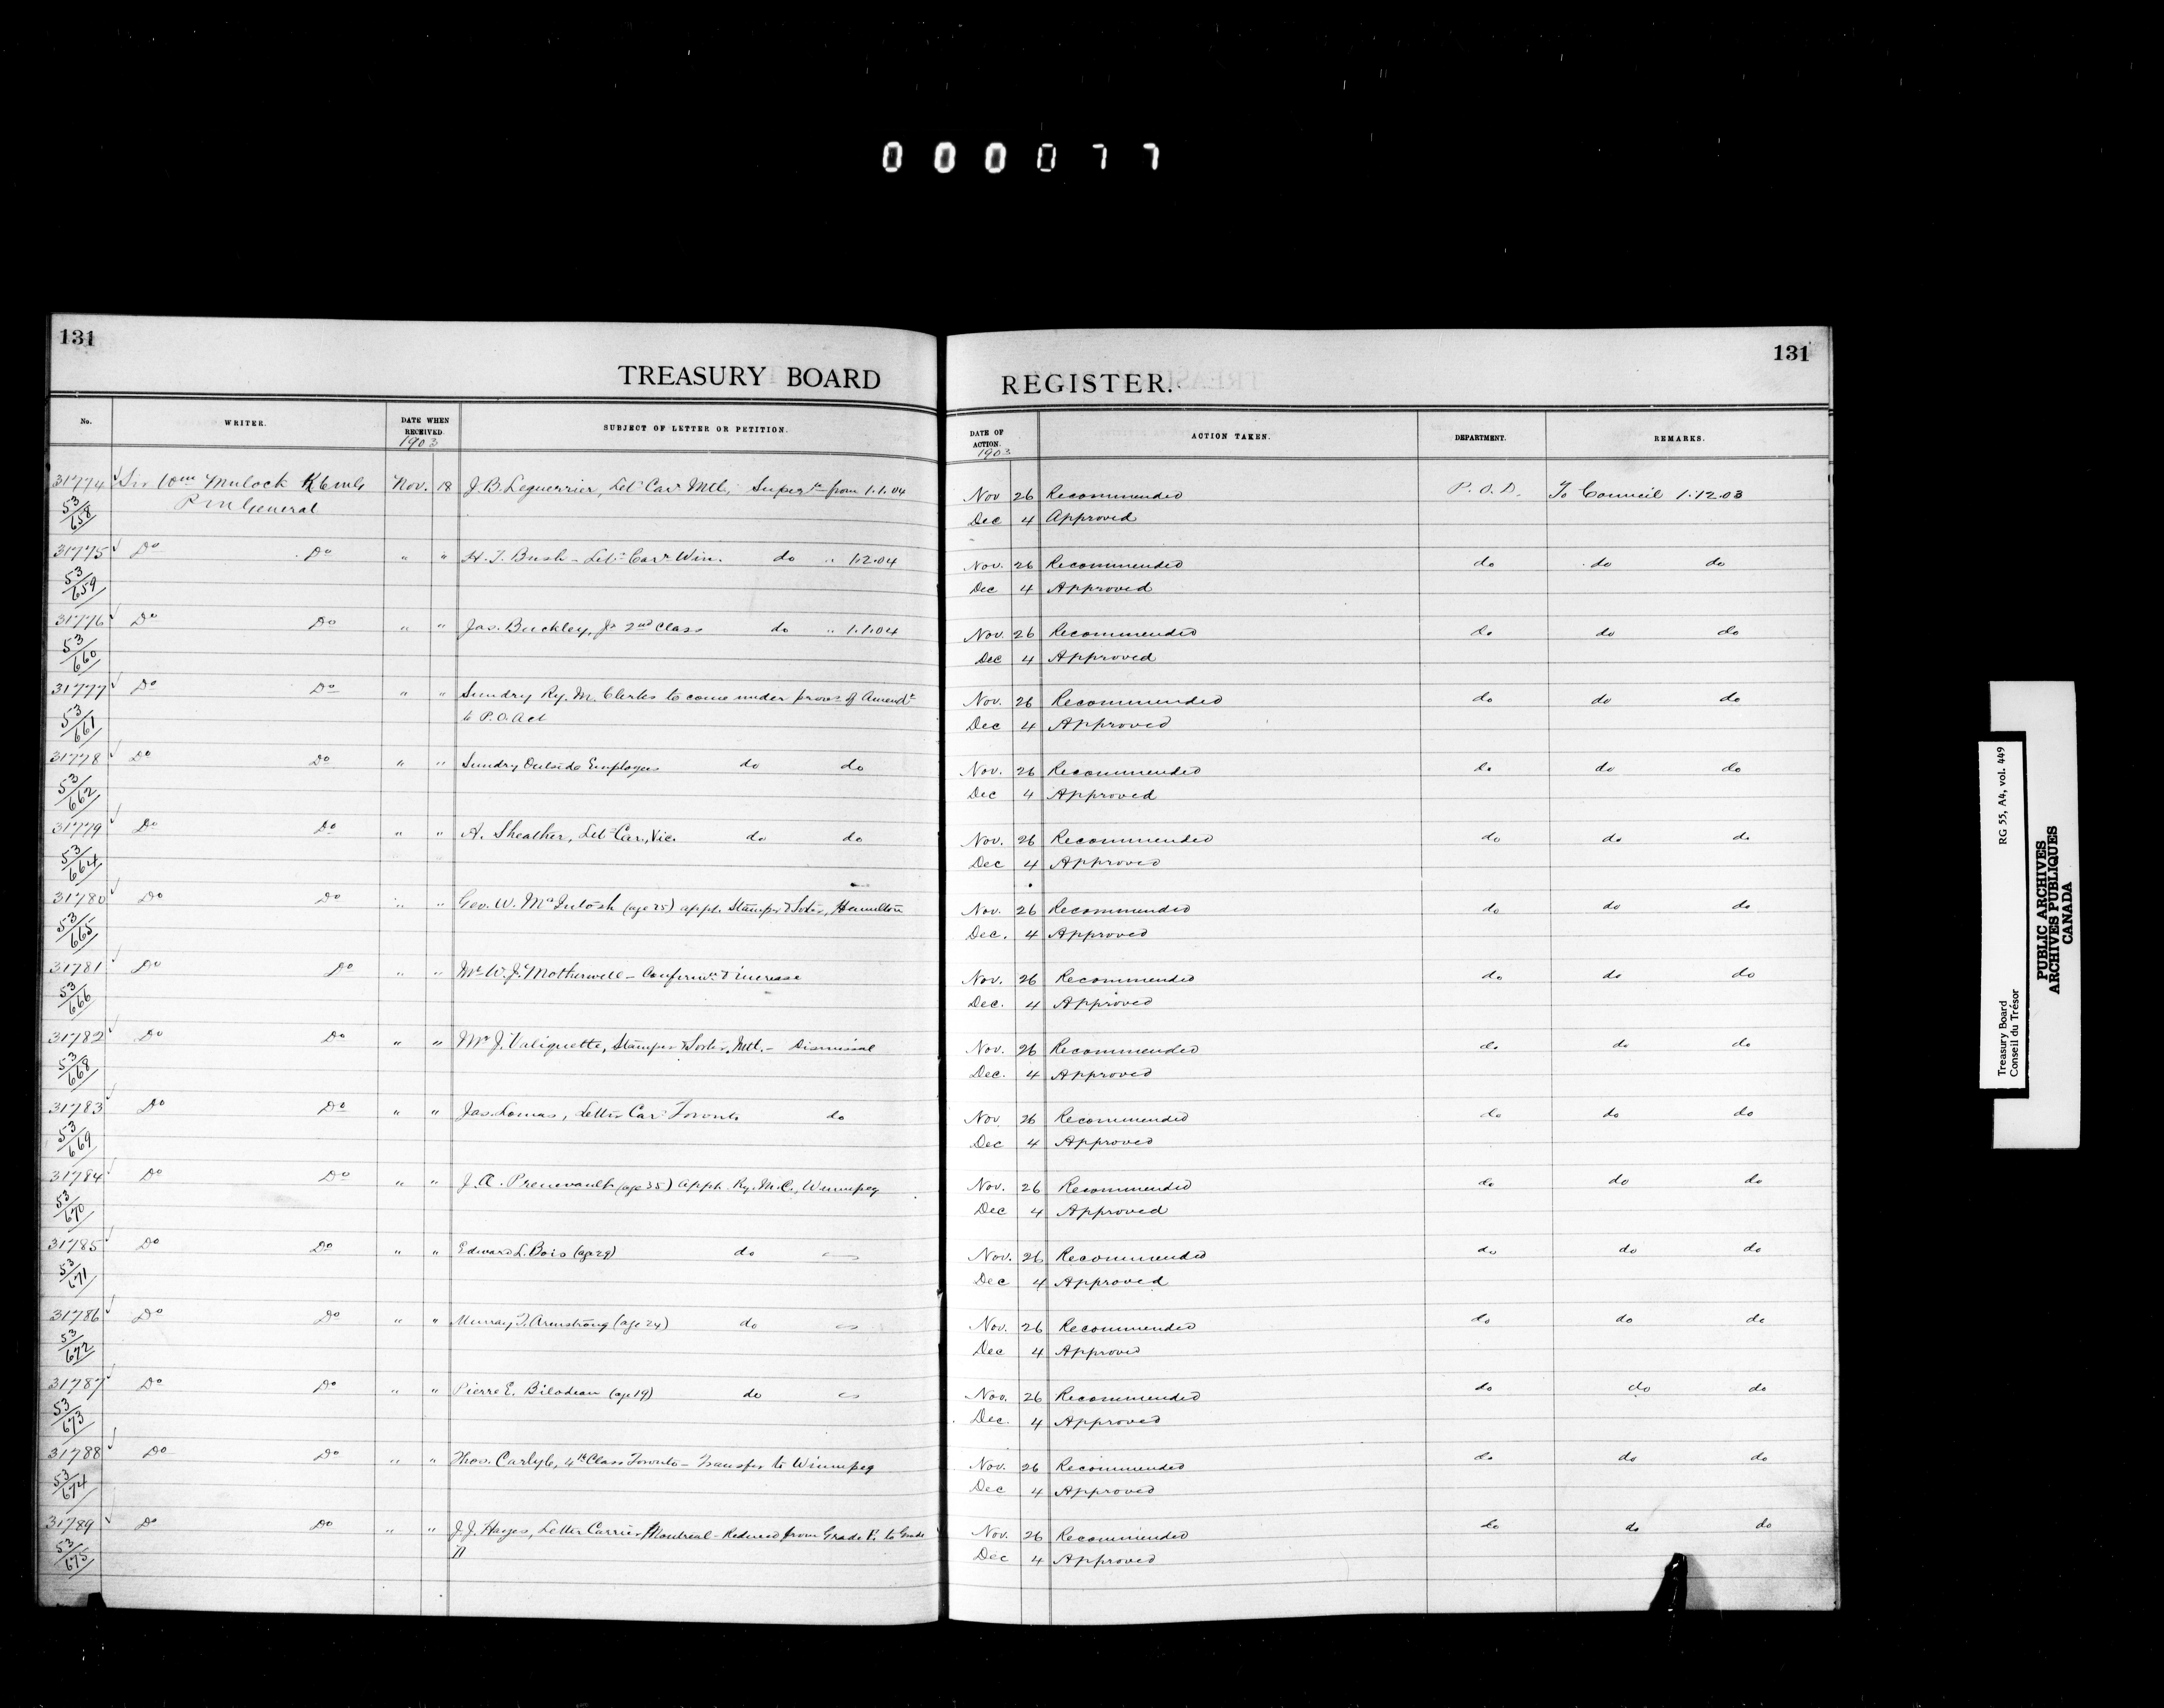 000077
131
131
TREASURY BOARD REGISTER.
No. WRITER. DATE WHEN RECEIVED. SUBJECT OF LETTER OR PETITION. DATE OF ACTION. ACTION TAKEN. DEPARTMENT. REMARKS.
1903 1903
31774 Sir Wm Mulock KCMG Nov. 18 J.B. Leguerrier, Let Carr Mtl, Super from 1.1.04 Nov 26 Recommended P.O.D. To Council 1.12.03
53/658 P M General Dec 4 Approved
31775 Do Do " " H.T. Bush - Let Carr Win. do " 1.2.04 Nov. 26 Recommended do do do
53/659 Dec 4 Approved
31776 Do Do " " Jas. Buckley, Jr 2nd Class do " 1.1.04 Nov. 26 Recommended do do do
53/660 Dec 4 Approved
31777 Do Do " " Sundry Ry. M. Clerks to come under provs of Amendt Nov. 26 Recommended do do do
53/661 to P.O. Act Dec 4 Approved
31778 Do Do " " Sundry Outside Employees do do Nov. 26 Recommended do do do
53/662 Dec 4 Approved
31779 Do Do " " A. Sheather, Let Car, Vic. do do Nov. 26 Recommended do do do
53/664 Dec 4 Approved
31780 Do Do " " Geo. W. McIntosh (age 25) appt. Stamper & Sorter, Hamilton Nov. 26 Recommended do do do
53/665 Dec. 4 Approved
31781 Do Do " " Mr W.J. Motherwell - Confirmn & increase Nov. 26 Recommended do do do
53/666 Dec. 4 Approved
31782 Do Do " " Mr J. Valiquette, Stamper & Sorter, Mtl. - Dismissal Nov. 26 Recommended do do do
53/668 Dec. 4 Approved
31783 Do Do " " Jas. Lomas, Letter Carr Toronto do Nov. 26 Recommended do do do
53/669 Dec 4 Approved
31784 Do Do " " J.A. Prenevault (age 35) Appt. Ry. M.C., Winnipeg Nov. 26 Recommended do do do
53/670 Dec 4 Approved
31785 Do Do " " Edward L. Bois (age 29) do Nov. 26 Recommended do do do
53/671 Dec 4 Approved
31786 Do Do " " Murray T. Armstrong (age 24) do Nov. 26 Recommended do do do
53/672 Dec 4 Approved
31787 Do Do " " Pierre E. Bilodeau (age 19) do Nov. 26 Recommended do do do
53/673 Dec. 4 Approved
31788 Do Do " " Thos. Carlyle, 4th Class Toronto - Transfer to Winnipeg Nov. 26 Recommended do do do
53/674 Dec 4 Approved
31789 Do Do " " J.J. Hayes, Letter Carrier Montreal - Reduced from Grade E. to Grade Nov. 26 Recommended do do do
53/675 D Dec 4 Approved
Treasury Board RG 55, A4, vol. 449
Conseil du Trésor
PUBLIC ARCHIVES
ARCHIVES PUBLIQUES
CANADA